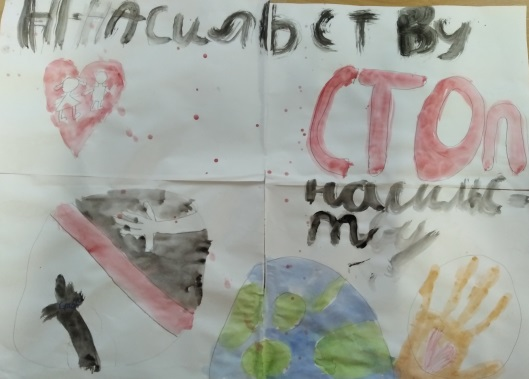 Н-НАСилЬСТВу
СТОп
насильс-
тву